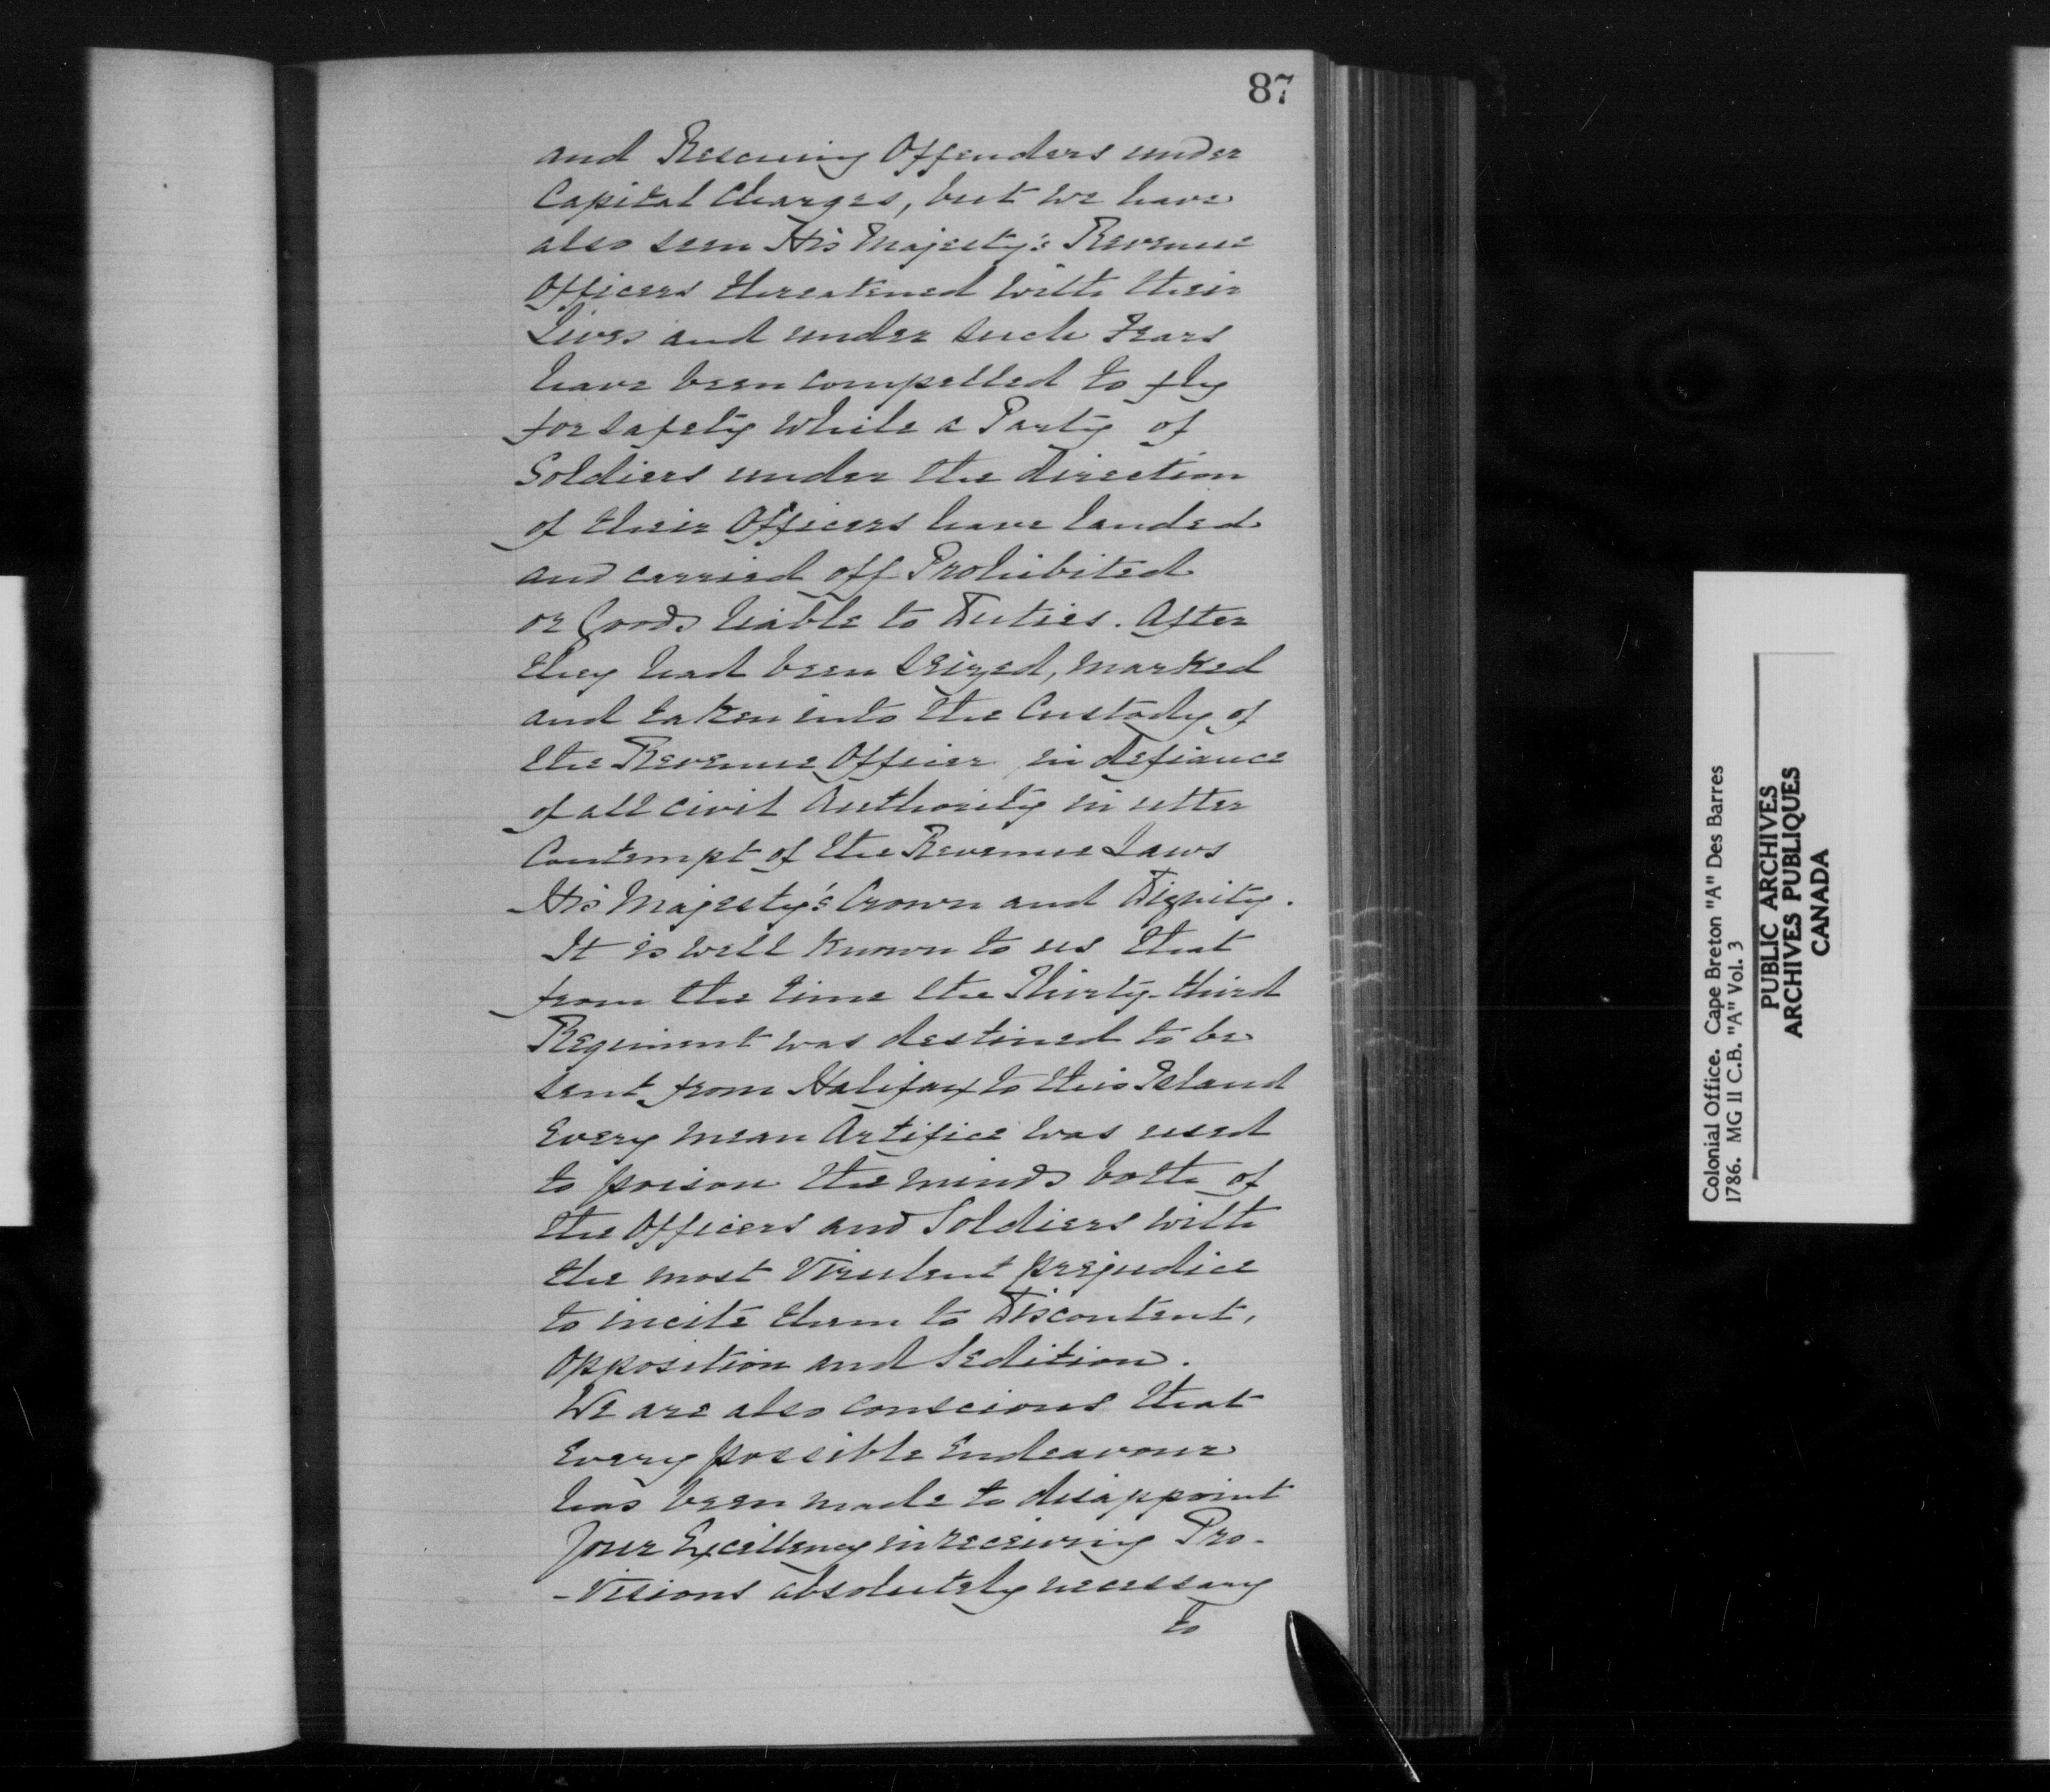 87
and Rescuing Offenders under
Capital Charges, but we have
also seen His Majesty's Revenue
Officers threatened with their
Lives and under such Fears
have been compelled to fly
for safety while a Party of
Soldiers under the direction
of their Officers have landed
and carried off Prohibited
or Goods liable to Duties. After
they had been seized, marked
and taken into the Custody of
the Revenue Officer in defiance
of all civil Authority in utter
Contempt of the Revenue Laws
His Majesty's Crown and Dignity.
It is well known to us that
from the time the Thirty-third
Regiment was destined to be
sent from Halifax to this Island
Every mean Artifice was used
to poison the minds both of
the Officers and Soldiers with
the most Virulent prejudice
to incite them to Discontent,
Opposition and Sedition.
We are also conscious that
Every possible Endeavour
has been made to disappoint
Your Excellency in receiving Pro-
-visions absolutely necessary
to
Colonial Office. Cape Breton "A" Des Barres
1786. MG 11 C.B. "A" Vol. 3
PUBLIC ARCHIVES
ARCHIVES PUBLIQUES
CANADA